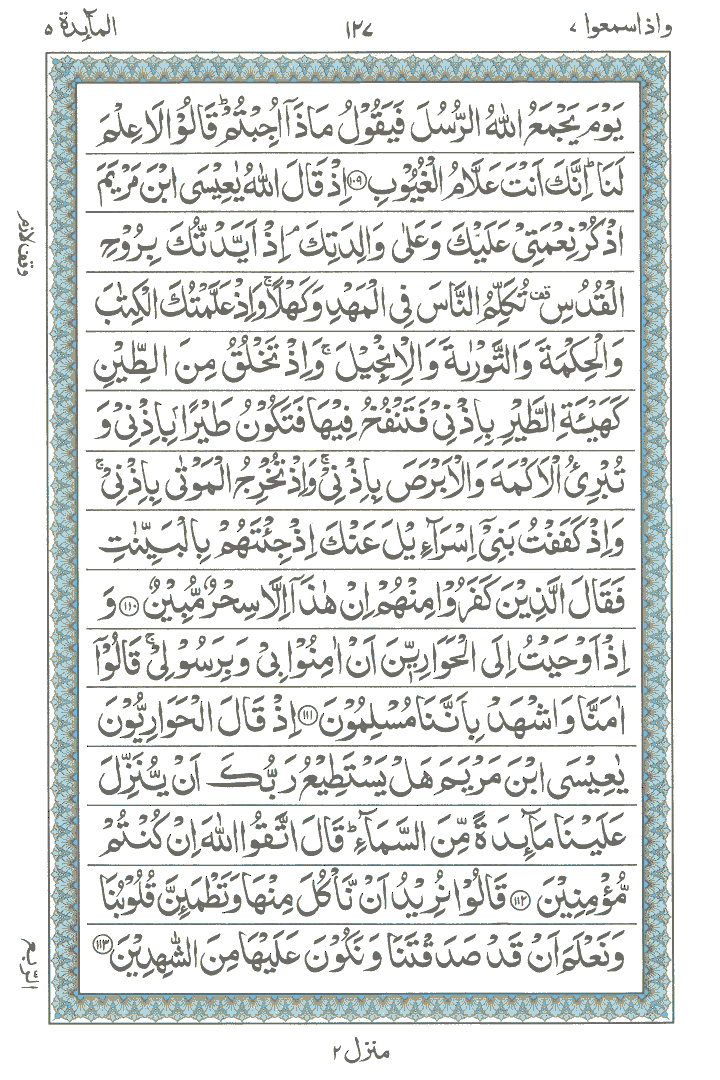 واذاسمعوا ۷ ۱۲۷ المآٮِٕدة ۵
يَوْمَ يَجْمَعُ اللّٰهُ الرُّسُلَ فَيَقُوْلُ مَاذَاۤ اُجِبْتُمْ ؕ قَالُوْا لَا عِلْمَ
لَنَا ؕ اِنَّكَ اَنْتَ عَلَّامُ الْغُيُوْبِ ۝۱۰۹ اِذْ قَالَ اللّٰهُ يٰعِيْسَى ابْنَ مَرْيَمَ
اذْكُرْ نِعْمَتِيْ عَلَيْكَ وَعَلٰى وَالِدَتِكَ ۘ اِذْ اَيَّدْتُّكَ بِرُوْحِ
الْقُدُسِ قف تُكَلِّمُ النَّاسَ فِى الْمَهْدِ وَكَهْلًا ۚ وَاِذْ عَلَّمْتُكَ الْكِتٰبَ
وَالْحِكْمَةَ وَالتَّوْرٰىةَ وَالْاِنْجِيْلَ ۚ وَاِذْ تَخْلُقُ مِنَ الطِّيْنِ
كَهَيْـَٔةِ الطَّيْرِ بِاِذْنِيْ فَتَنْفُخُ فِيْهَا فَتَكُوْنُ طَيْرًۢا بِاِذْنِيْ وَ
تُبْرِئُ الْاَكْمَهَ وَالْاَبْرَصَ بِاِذْنِيْ ۚ وَاِذْ تُخْرِجُ الْمَوْتٰى بِاِذْنِيْ ۚ
وَاِذْ كَفَفْتُ بَنِيْۤ اِسْرَآءِيْلَ عَنْكَ اِذْ جِئْتَهُمْ بِالْبَيِّنٰتِ
فَقَالَ الَّذِيْنَ كَفَرُوْا مِنْهُمْ اِنْ هٰذَاۤ اِلَّا سِحْرٌ مُّبِيْنٌ ۝۱۱۰ وَ
اِذْ اَوْحَيْتُ اِلَى الْحَوَارِيّٖنَ اَنْ اٰمِنُوْا بِيْ وَبِرَسُوْلِيْ ۚ قَالُوْۤا
اٰمَنَّا وَاشْهَدْ بِاَنَّنَا مُسْلِمُوْنَ ۝۱۱۱ اِذْ قَالَ الْحَوَارِيُّوْنَ
يٰعِيْسَى ابْنَ مَرْيَمَ هَلْ يَسْتَطِيْعُ رَبُّكَ اَنْ يُّنَزِّلَ
عَلَيْنَا مَآئِدَةً مِّنَ السَّمَآءِ ؕ قَالَ اتَّقُوا اللّٰهَ اِنْ كُنْتُمْ
مُّؤْمِنِيْنَ ۝۱۱۲ قَالُوْا نُرِيْدُ اَنْ نَّاْكُلَ مِنْهَا وَتَطْمَئِنَّ قُلُوْبُنَا
وَنَعْلَمَ اَنْ قَدْ صَدَقْتَنَا وَنَكُوْنَ عَلَيْهَا مِنَ الشّٰهِدِيْنَ ۝۱۱۳
وقف لازم
الربع
منزل ۲